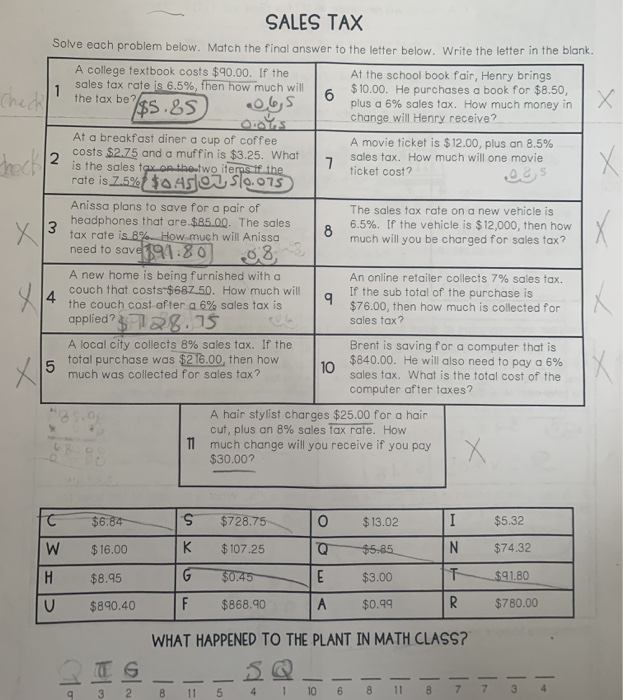 SALES TAX
Solve each problem below. Match the final answer to the letter below. Write the letter in the blank.
check
1
A college textbook costs $90.00. If the
sales tax rate is 6.5%, then how much will
the tax be?
$5.85
.06,5
0.065
6
At the school book fair, Henry brings
$10.00. He purchases a book for $8.50,
plus a 6% sales tax. How much money in
change will Henry receive?
X
check
2
At a breakfast diner a cup of coffee
costs $2.75 and a muffin is $3.25. What
is the sales tax on the two items if the
rate is 7.5%?
$0.45
0.075
7
A movie ticket is $12.00, plus an 8.5%
sales tax. How much will one movie
ticket cost?
X
X
3
Anissa plans to save for a pair of
headphones that are $85.00. The sales
tax rate is 8%. How much will Anissa
need to save
$91.80
.08,
8
The sales tax rate on a new vehicle is
6.5%. If the vehicle is $12,000, then how
much will you be charged for sales tax?
X
X
4
A new home is being furnished with a
couch that costs $687.50. How much will
the couch cost after a 6% sales tax is
applied?
$728.75
9
An online retailer collects 7% sales tax.
If the sub total of the purchase is
$76.00, then how much is collected for
sales tax?
X
X
5
A local city collects 8% sales tax. If the
total purchase was $216.00, then how
much was collected for sales tax?
10
Brent is saving for a computer that is
$840.00. He will also need to pay a 6%
sales tax. What is the total cost of the
computer after taxes?
X
11
A hair stylist charges $25.00 for a hair
cut, plus an 8% sales tax rate. How
much change will you receive if you pay
$30.00?
X
C $6.84 S $728.75 O $13.02 I $5.32
W $16.00 K $107.25 Q $5.85 N $74.32
H $8.95 G $0.45 E $3.00 T $91.80
U $890.40 F $868.90 A $0.99 R $780.00
WHAT HAPPENED TO THE PLANT IN MATH CLASS?
T G S Q
9 3 2 8 11 5 4 1 10 6 8 11 8 7 7 3 4